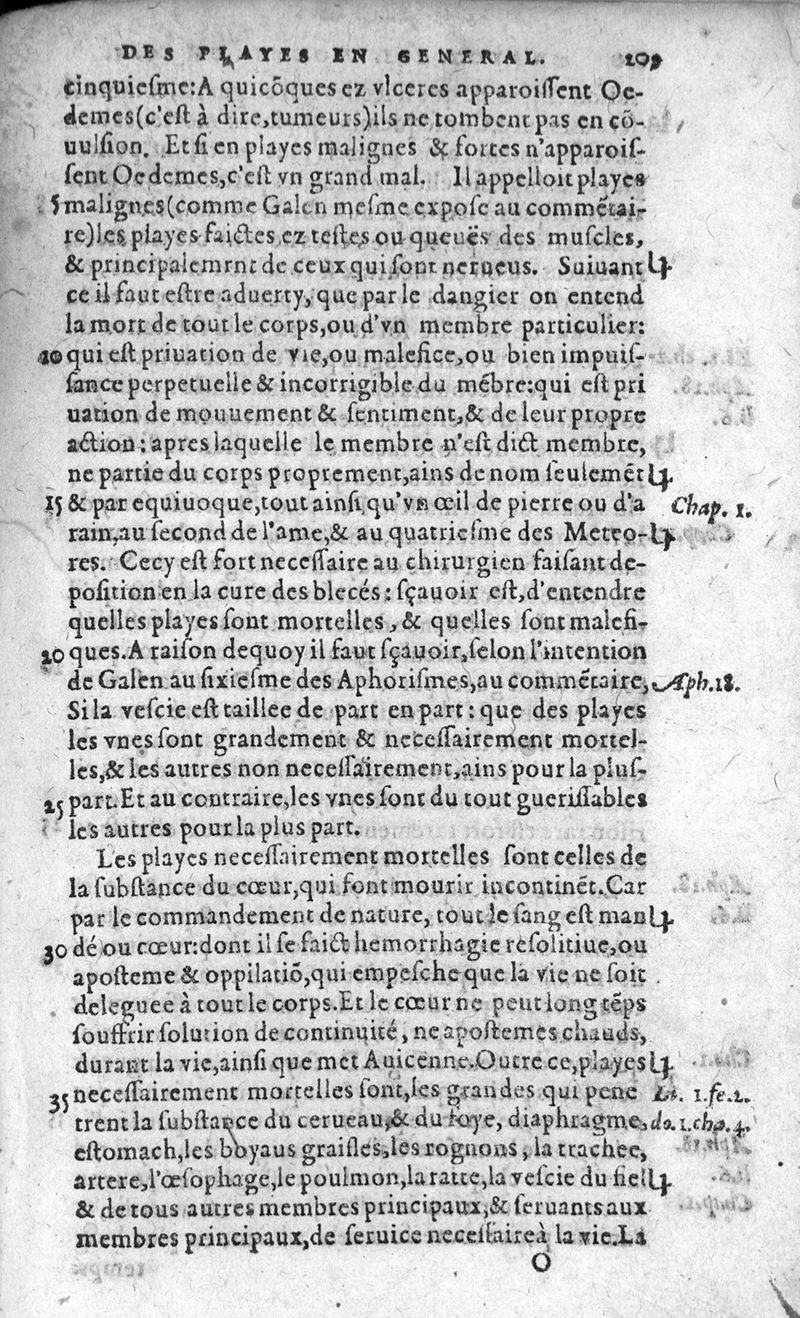 DES PLAYES EN GENERAL. 209
cinquiesme:A quicõques ez vlceres apparoiſſent Oe-
demes(c'eſt à dire,tumeurs)ils ne tombent pas en cõ-
uulſion. Et ſi en playes malignes & fortes n'apparoiſ-
ſent Oedemes,c'eſt vn grand mal. Il appelloit playes
5 malignes(comme Galen meſme expoſe au commẽtai-
re)les playes faictes ez teſtes ou queuës des muſcles,
& principalemrnt de ceux qui ſont nerueus. Suiuant
ce il faut eſtre aduerty, que par le dangier on entend
la mort de tout le corps,ou d'vn membre particulier:
10 qui eſt priuation de vie,ou malefice,ou bien impuiſ-
ſance perpetuelle & incorrigible du mẽbre:qui eſt pri
uation de mouuement & ſentiment,& de leur propre
action: apres laquelle le membre n'eſt dict membre,
ne partie du corps proprement,ains de nom ſeulemẽt
15 & par equiuoque,tout ainſi qu'vn œil de pierre ou d'a Chap. 1.
rain,au ſecond de l'ame,& au quatrieſme des Meteo-
res. Cecy eſt fort neceſſaire au chirurgien faiſant de-
poſition en la cure des blecés: ſçauoir eſt,d'entendre
quelles playes ſont mortelles, & quelles ſont malefi-
20 ques.A raiſon dequoy il faut ſçauoir,ſelon l'intention
de Galen au ſixieſme des Aphoriſmes,au commẽtaire, Aph.18.
Si la veſcie eſt taillee de part en part: que des playes
les vnes ſont grandement & neceſſairement mortel-
les,& les autres non neceſſairement,ains pour la pluſ-
25 part.Et au contraire,les vnes ſont du tout gueriſſables
les autres pour la plus part.
Les playes neceſſairement mortelles ſont celles de
la ſubſtance du cœur,qui font mourir incontinẽt.Car
par le commandement de nature, tout le ſang eſt man
30 dé ou cœur:dont il ſe faict hemorrhagie reſolitiue,ou
apoſteme & oppilatiõ,qui empeſche que la vie ne ſoit
deleguee à tout le corps.Et le cœur ne peut long tẽps
ſouffrir ſolution de continuité, ne apoſtemes chauds,
durant la vie,ainſi que met Auicenne.Outre ce,playes
35 neceſſairement mortelles ſont,les grandes qui pene Li. 1.fe.1.
trent la ſubſtance du cerueau,& du foye, diaphragme, do.1.cha.4.
eſtomach,les boyaus graiſles,les rognons, la trachee,
artere,l'œſophage,le poulmon,la ratte,la veſcie du fiel
& de tous autres membres principaux,& ſeruants aux
membres principaux,de ſeruice neceſſaire à la vie.La
O